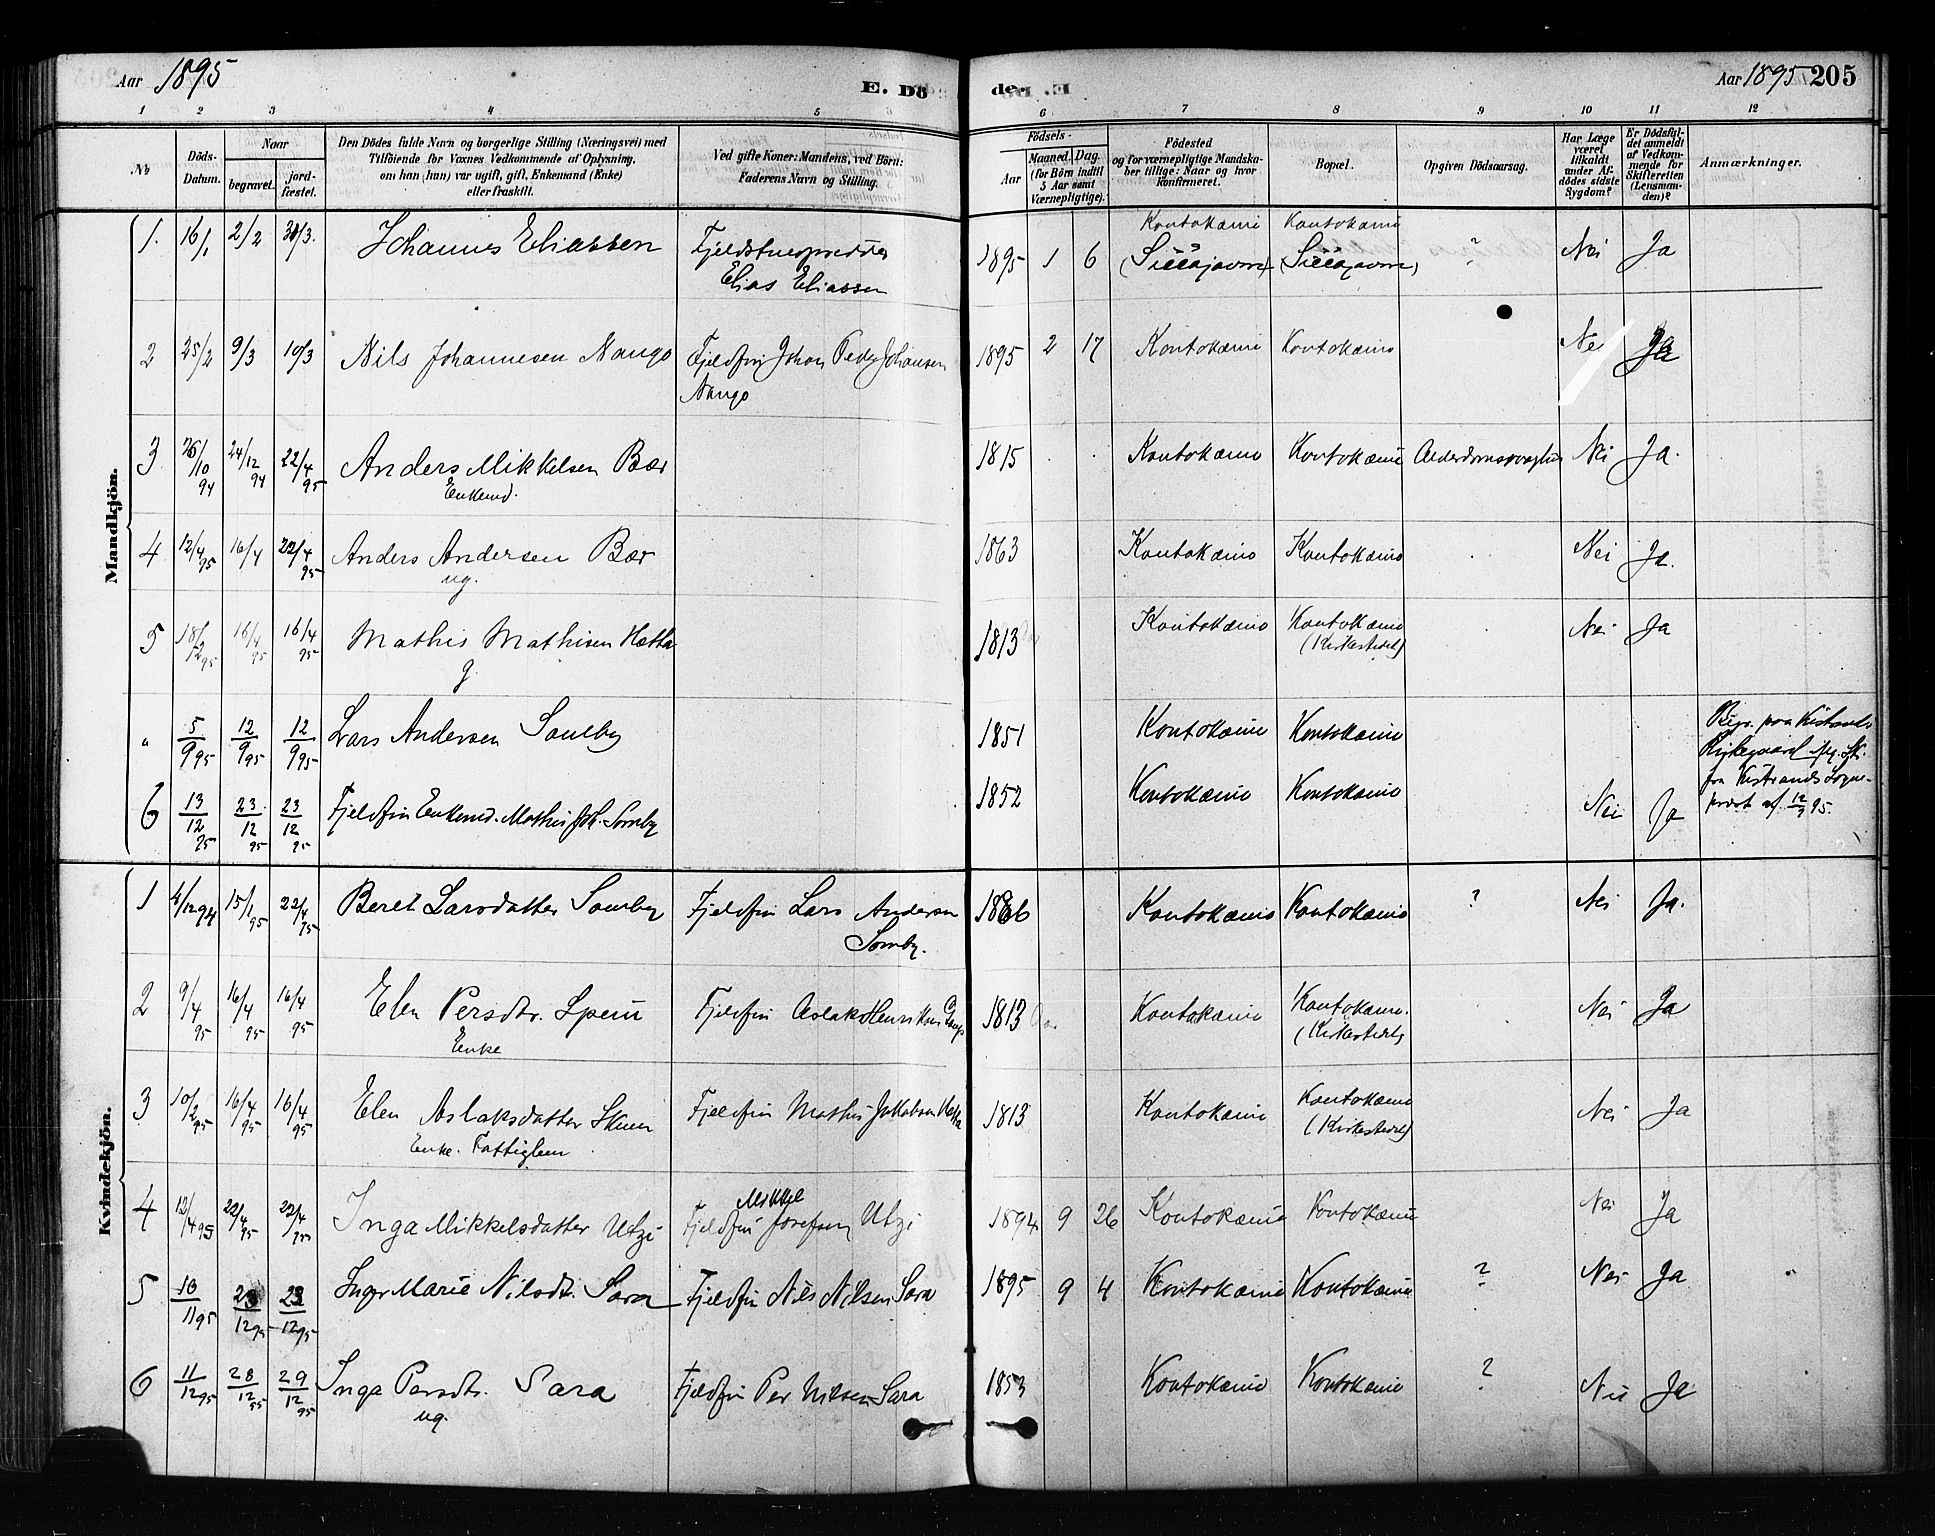 Aar 1895 E. Dö de. Aar 1895 205
1 2 3 4 5 6 7 8 9 10 11 12
№ Döds-Datum. Naar begravet. jordfæstet. Den Dödes fulde Navn og borgerlige Stilling (Næringsvei) med Tilföiende for Voxnes Vedkommende af Oplysning, om han (hun) var ugift, gift, Enkemand (Enke) eller fraskilt. Ved gifte Koner: Mandens, ved Börn: Faderens Navn og Stilling. Födsels- Aar Maaned. Dag. (for Börn indtil 5 Aar samt Værnepligtige). Födested og for værnepligtige Mandskaber tillige: Naar og hvor Konfirmeret. Bopæl. Opgiven Dödsaarsag. Har Læge været tilkaldt under Afdödes sidste Sygdom? Er Dödsfaldet anmeldt af Vedkommende for Skifteretten (Lensmanden)? Anmærkninger.
Mandkjön.
1. 16/1 2/2 31/3. Johannes Eliassen Fjeldstueopredder 1895 1 6 Koutokæino Koutokæino ? Nei Ja
Elias Eliassen (Siccajavrre) (Siccajavrre)
2 25/2 9/3 10/3 Nils Johannesen Nango Fjeldfin Johan Peder Johansen 1895 2 17 Koutokæino Koutokæino Nei Ja
Nango
3 26/10 94 24/12 94 22/4 95 Anders Mikkelsen Bær 1815 Koutokæino Koutokæino Alderdomssvaghed Nei Ja.
Enkemd.
4 12/4 95 16/4 22/4 95 Anders Andersen Bær 1863 Koutokæino Koutokæino Nei Ja.
ug.
5 18/12 95 16/4 95 16/4 95 Mathis Mathisen Hætta 1813 Koutokæino Koutokæino Nei Ja
g. (Kirkestedet)
" 5/9 95 12/9 95 12/9 95 Lars Andersen Somby 1851 Koutokæino Koutokæino Begr. paa Kistrands
Kirkegaard flg. Sk.
fra Kistrands Sogne-
prest af 12/9 95.
6 13/12 95 23/12 95 23/12 95 Fjeldfin Enkemd. Mathis Joh. Somby 1852 Koutokæino Koutokæino Nei Ja
Kvindekjön.
1 4/12 94 15/1 95 22/4 95 Beret Larsdatter Somby Fjeldfin Lars Andersen 1886 Koutokæino Koutokæino ? Nei Ja.
Somby.
2 9/4 95 16/4 95 16/4 95 Elen Persdtr. Spein Fjeldfin Aslak Henriksen 1813 Koutokæino Koutokæino. Nei Ja
Enke (Kirkestedet)
3 10/2 95 16/4 95 16/4 95 Elen Aslaksdatter Skum Fjeldfin Mathis Jakobsen Hætta 1813 Koutokæino Koutokæino Nei Ja
Enke. Fattiglem (Kirkestedet)
4 12/4 95 22/4 95 22/4 95 Inga Mikkelsdatter Utzi Fjeldfin Mikkel Josefsen Utzi 1894 9 26 Koutokæino Koutokæino Nei Ja
5 10/11 95 23/12 95 23/12 95 Inger Marie Nilsdt. Sara Fjeldfin Nils Nilsen Sara 1895 9 4 Koutokæino Koutokæino ? Nei Ja
6 11/12 95 28/12 95 29/12 95 Inga Persdtr. Sara Fjeldfin Per Nilsen Sara 1853 Koutokæino Koutokæino ? Nei Ja
ug.